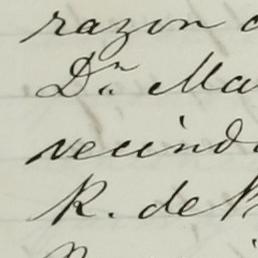 razon
Dn. Ma
vecind
R. de P